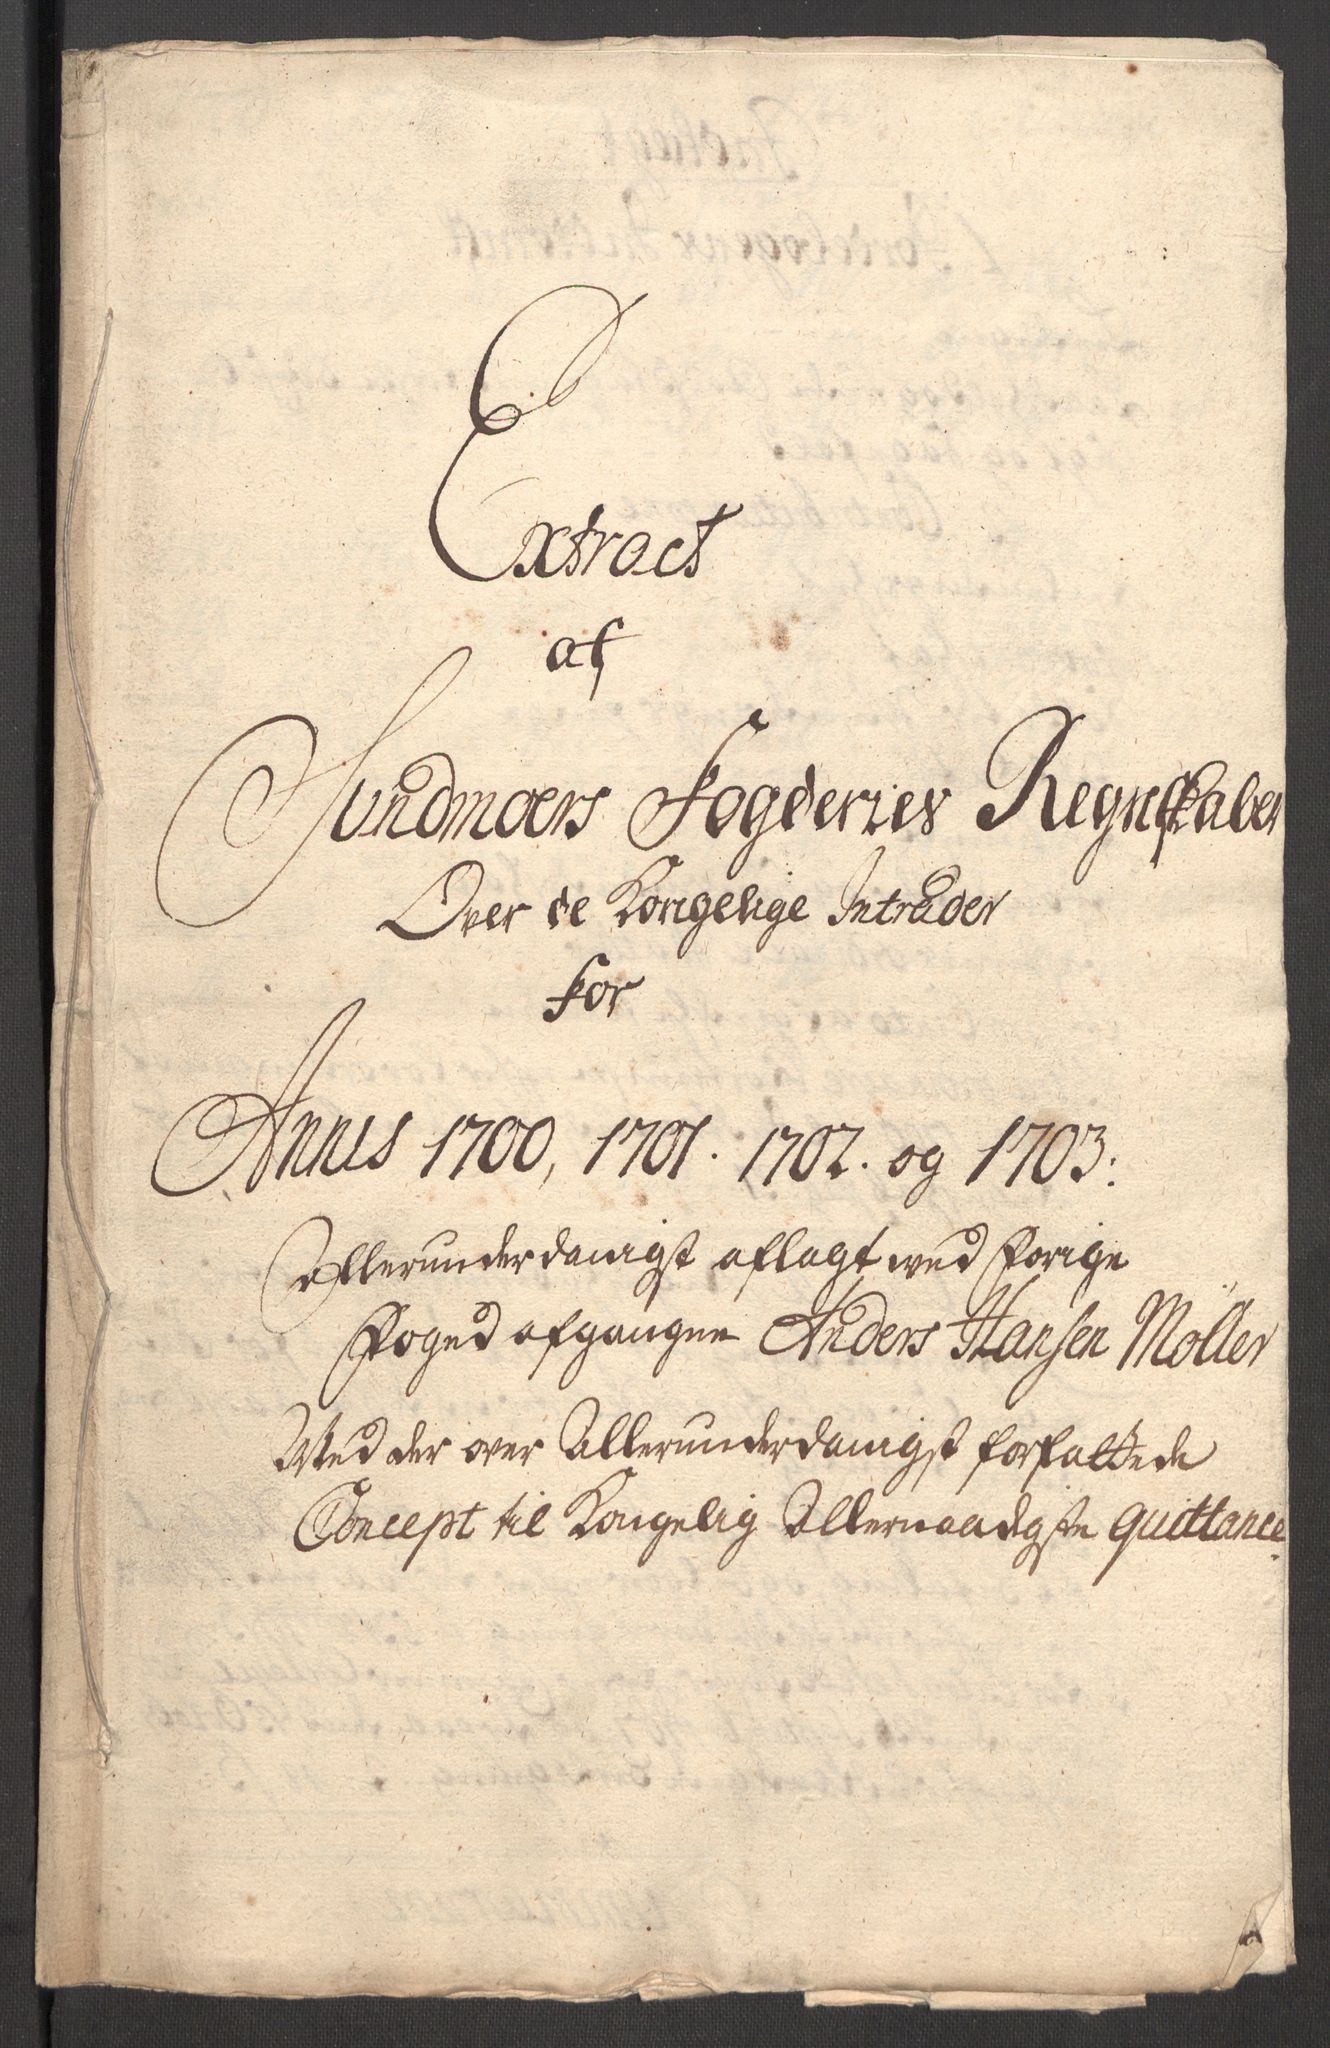 Extract
af
Sundmoers Fogderies Regnskaber
Over de Kongelige Intrader
for
Annis 1700, 1701. 1702. og 1703:
Allerunderdanigst aflagt wed Forige
Foged afgangne Anders Hansen Møller
Med der over Allerunderdanigst forfattede
Concept til Kongelig Allernaadigste quittance.